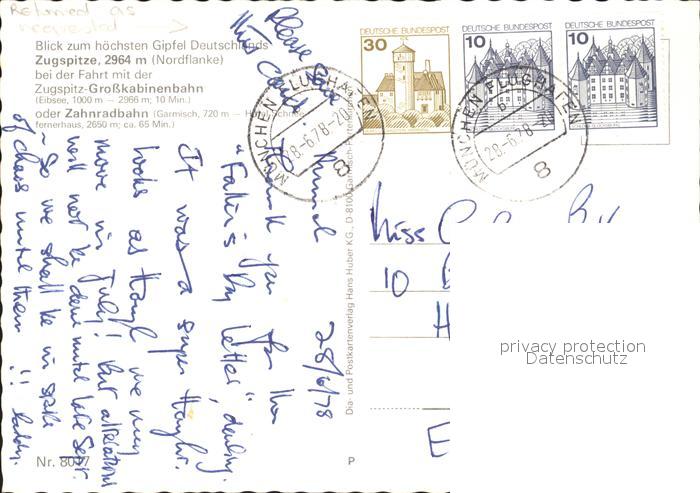 Returned as
requested
Blick zum höchsten Gipfel Deutschlands
Zugspitze, 2964 m (Nordflanke)
bei der Fahrt mit der
Zugspitz-Großkabinenbahn
(Eibsee, 1000 m — 2966 m; 10 Min.)
oder Zahnradbahn (Garmisch, 720 m — Hotel Schnee-
fernerhaus, 2650 m; ca. 65 Min.)
Please Save
this Card
28/6/78
Thank you for the
"Father's Day letter", darling.
It was a super
looks as though we may
move in July! But alterations
will not be done until late Sept.
- So we shall be in
of chaos until then !! Daddy.
Nr. 8017
P
Dia- und Postkartenverlag Hans Huber KG., D 8100 Garmisch-Partenkirchen
DEUTSCHE BUNDESPOST
30
DEUTSCHE BUNDESPOST
10
DEUTSCHE BUNDESPOST
10
MÜNCHEN FLUGHAFEN
28.-6.78-20
8
MÜNCHEN FLUGHAFEN
28.-6.78-20
8
Miss C
10
H
E
privacy protection
Datenschutz